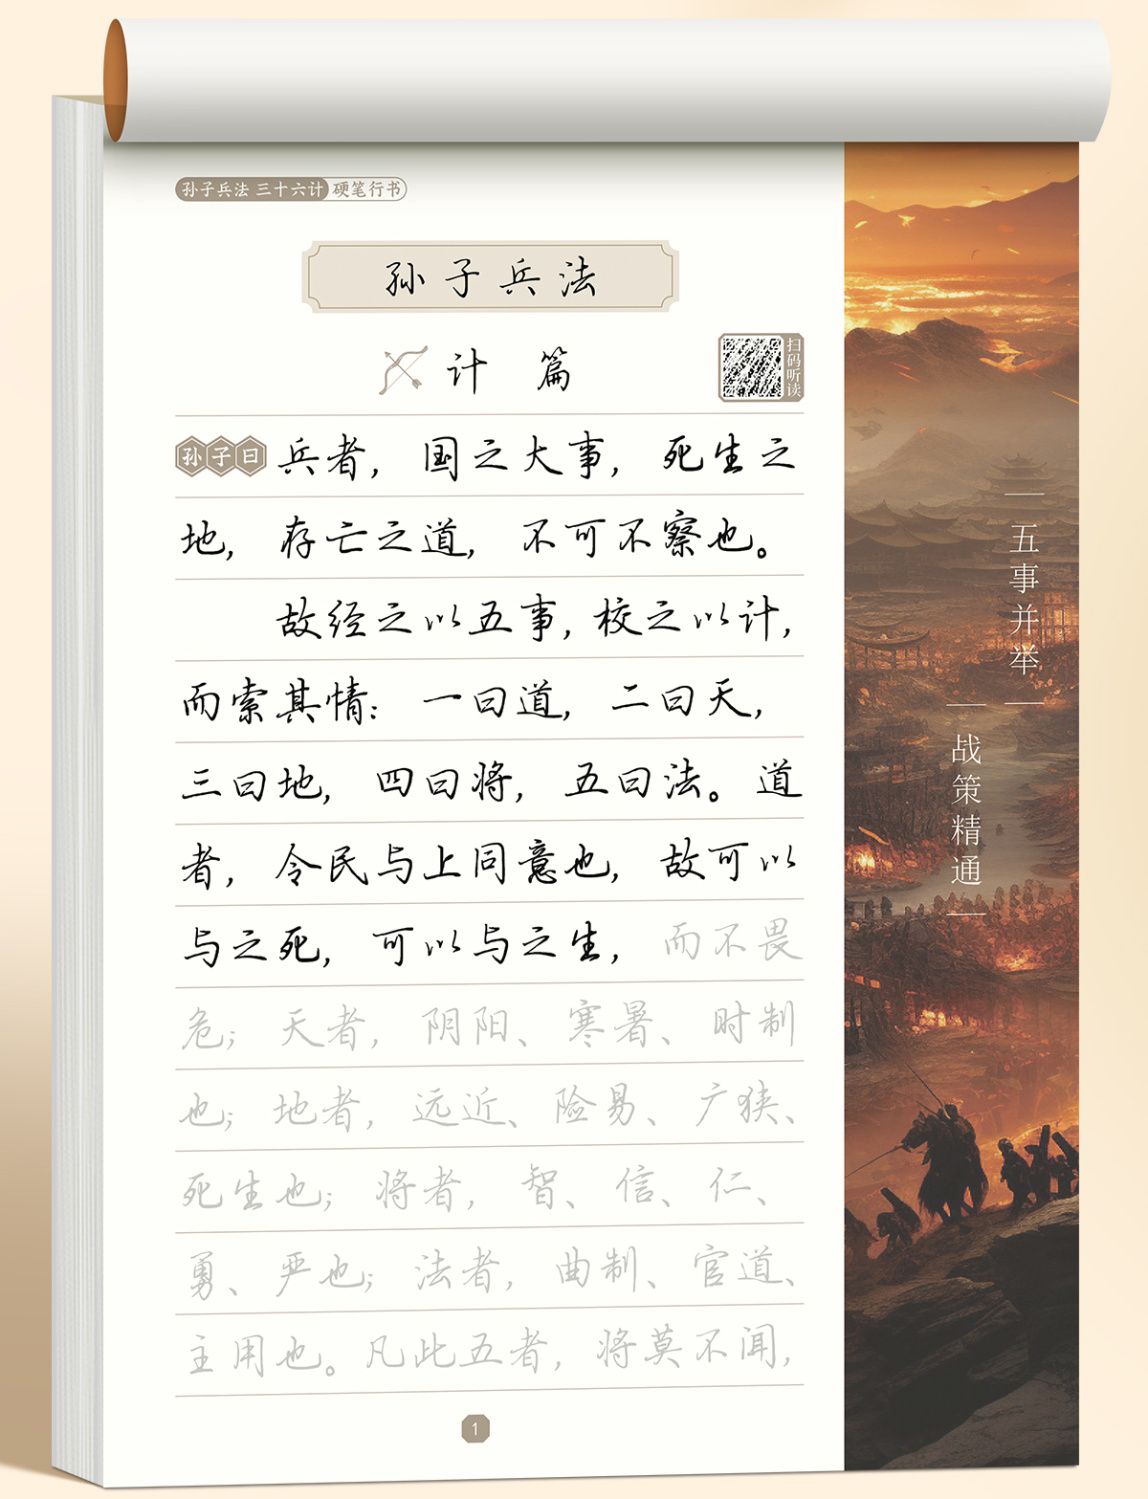 孙子兵法 三十六计 硬笔行书
孙子兵法
计 篇
扫码听读
孙子曰 兵者，国之大事，死生之
地，存亡之道，不可不察也。
故经之以五事，校之以计，
而索其情：一曰道，二曰天，
三曰地，四曰将，五曰法。道
者，令民与上同意也，故可以
与之死，可以与之生，而不畏
危；天者，阴阳、寒暑、时制
也；地者，远近、险易、广狭、
死生也；将者，智、信、仁、
勇、严也；法者，曲制、官道、
主用也。凡此五者，将莫不闻，
1
五事并举
战策精通